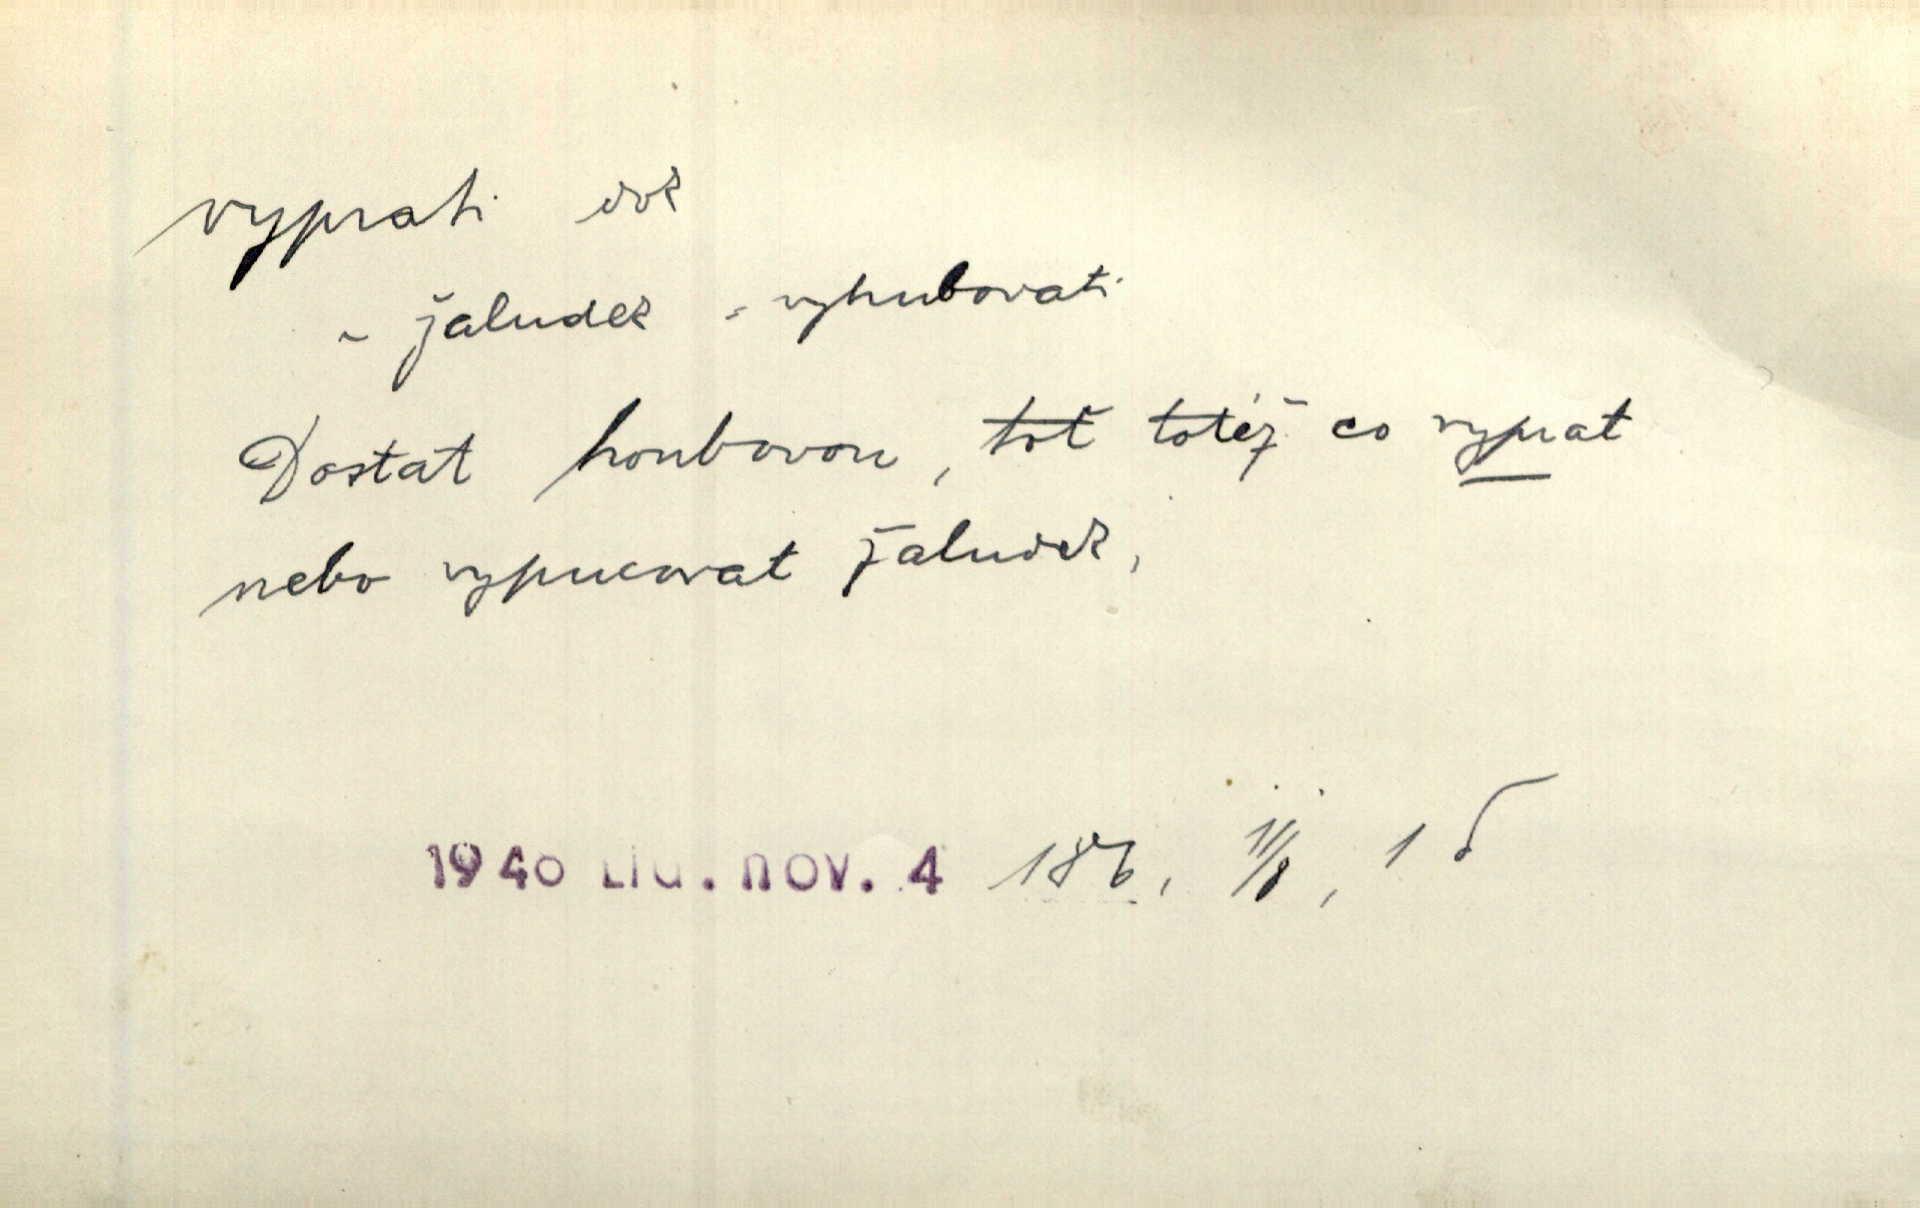 vyprati dok
~ žaludek = vyhubovati
Dostat houbovou, toť totéž co vyprat
nebo vypucovat žaludek,
1940 Lid. nov. 4 186, 11/8, 1 δ